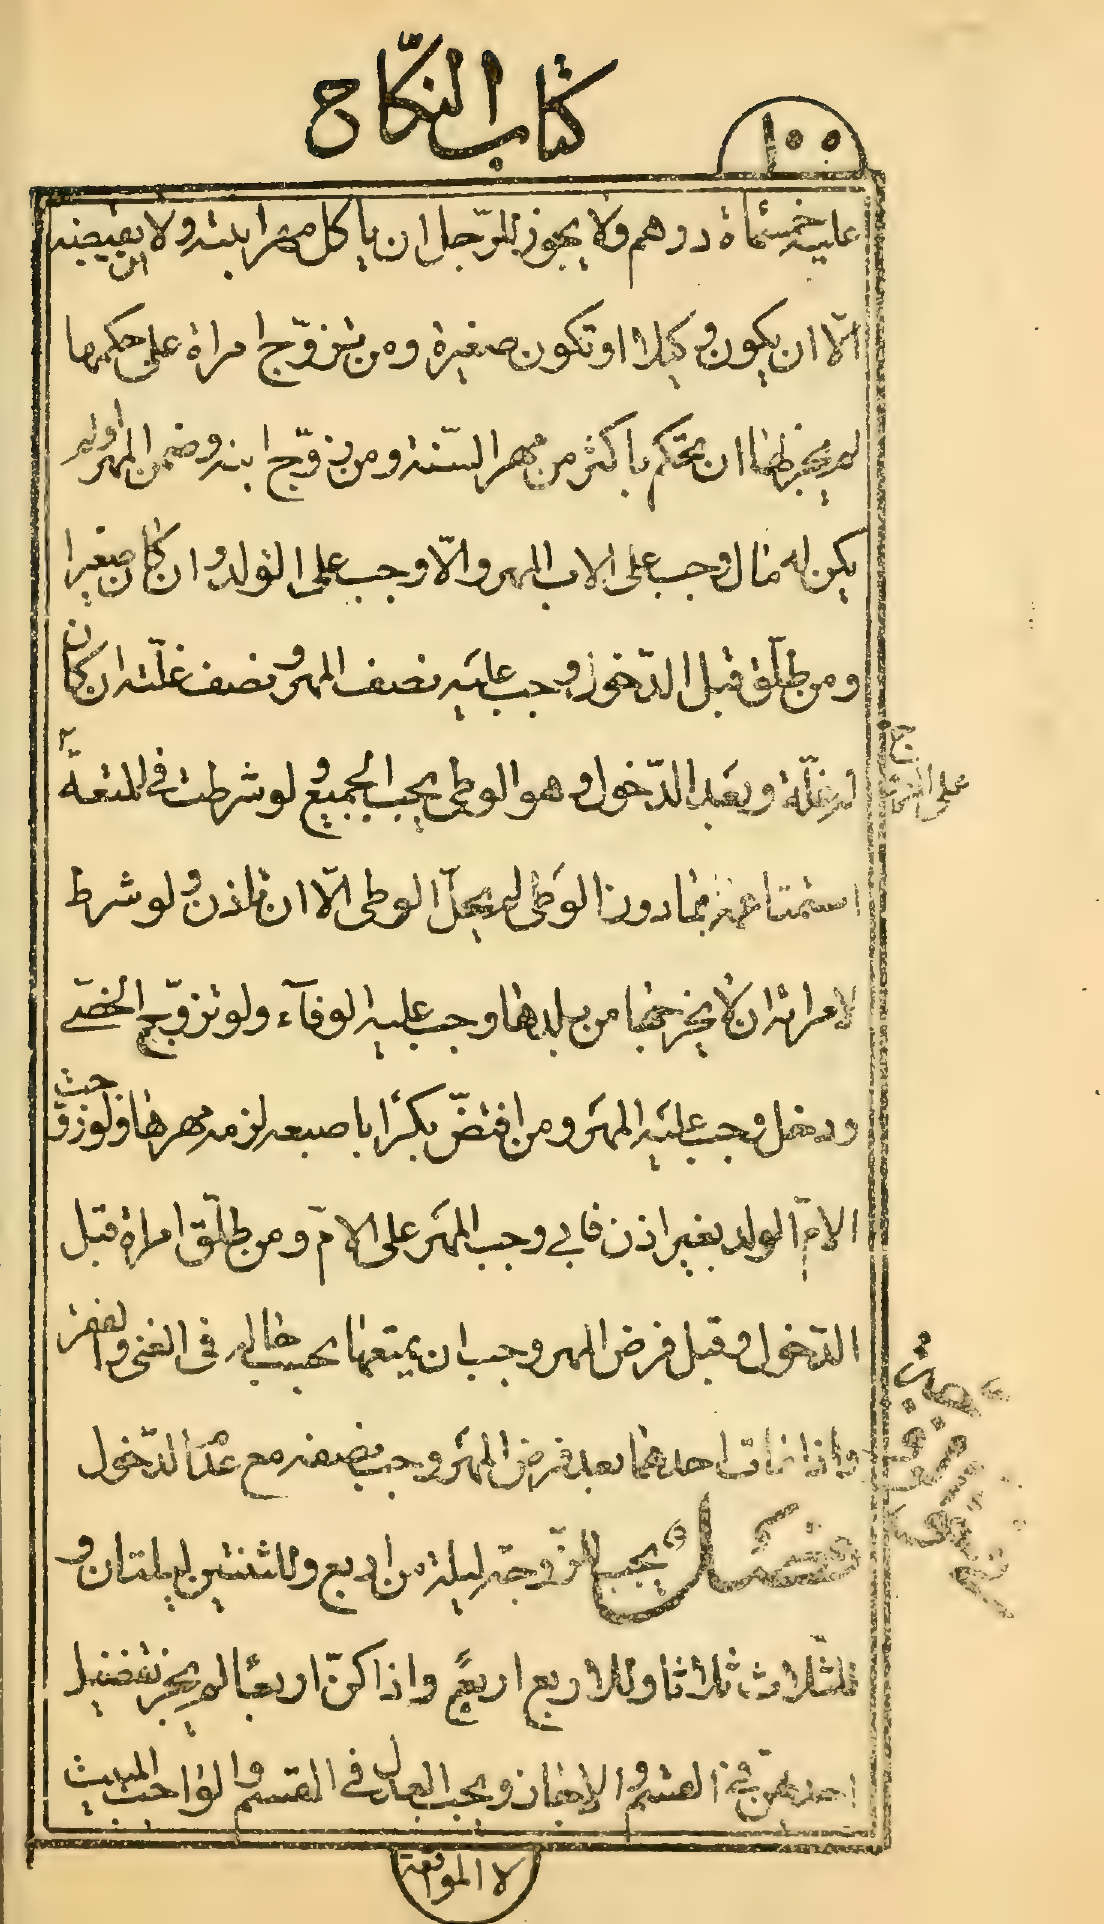 كتاب النكاح
١٠٠
عليه خمسمأة درهم ولا يجوز للرّجل ان ياكل مهر ابنته ولا ان يقبضه
الّا ان يكون وكيلا او تكون صغيرة ومن تزوّج امراة على حكمها
لم يجز لها ان تحكم باكثر من مهر السّنة ومن زوّج ابنه وضمن المهر او لم
يكن له مال وجب على الاب المهر والّا وجب على الولد وان كان صغيرا
ومن طلّق قبل الدّخول وجب عليه نصف المهر ونصف غلّته ان كان
له غلّة وبعد الدّخول وهو الوطى يجب الجميع ولو شرطت في المتعة
استمتاعه بما دون الوطى لم يحلّ الوطى الّا ان تاذن ولو شرط
لامراته ان لا يخرجها من بلدها وجب عليه الوفآء ولو تزوّج الخصى
ودخل وجب عليه المهر ومن افتضّ بكرا باصبعه لزمه مهرها ولو زوّجت
الامّ الولد بغير اذن فابى وجب المهر على الامّ ومن طلّق امراة قبل
الدّخول وقبل فرض المهر وجب ان يمتعها بحسب حاله في الغنى والفقر
واذا مات احدهما بعد فرض المهر وجب نصفه مع عدم الدّخول
فصل يجب للزّوجة ليلة من اربع وللثنتين ليلتان و
للثّلاث ثلاثا وللاربع اربع واذا كنّ اربعًا لم يجز تفضيل
احدهنّ في القسم والانفاق ويجب العدل في القسم والواجب المبيت
لا المواقعة